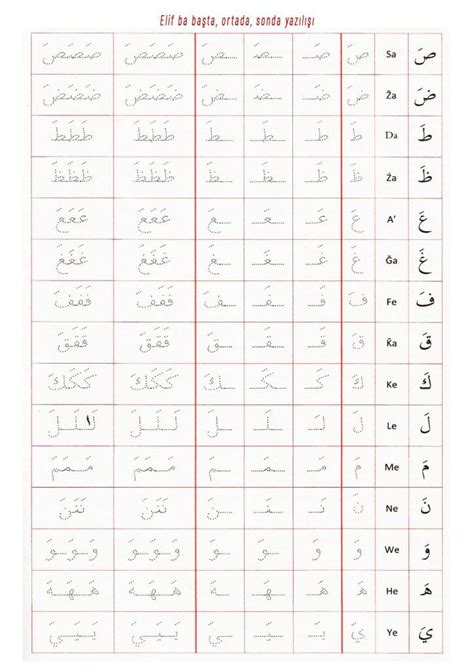 Elif ba başta, ortada, sonda yazılışı
صَ Sa صَ صَـ ـصَـ ـصَ صَصَصَ صَصَصَ
ضَ Ża ضَ ضَـ ـضَـ ـضَ ضَضَضَ ضَضَضَ
طَ Da طَ طَـ ـطَـ ـطَ طَطَطَ طَطَطَ
ظَ Źa ظَ ظَـ ـظَـ ـظَ ظَظَظَ ظَظَظَ
عَ A’ عَ عَـ ـعَـ ـعَ عَعَعَ عَعَعَ
غَ Ğa غَ غَـ ـغَـ ـغَ غَغَغَ غَغَغَ
فَ Fe فَ فَـ ـفَـ ـفَ فَفَفَ فَفَفَ
قَ Ǩa قَ قَـ ـقَـ ـقَ قَقَقَ قَقَقَ
كَ Ke كَ كَـ ـكَـ ـكَ كَكَكَ كَكَكَ
لَ Le لَ لَـ ـلَـ ـلَ لَلَلَ لَلَلَ
مَ Me مَ مَـ ـمَـ ـمَ مَمَمَ مَمَمَ
نَ Ne نَ نَـ ـنَـ ـنَ نَنَنَ نَنَنَ
وَ We وَ وَ ـوَ ـوَ وَـوَـوَ وَـوَـوَ
هَ He هَ هَـ ـهَـ ـهَ هَهَهَ هَهَهَ
يَ Ye يَ يَـ ـيَـ ـيَ يَيَيَ يَيَيَ